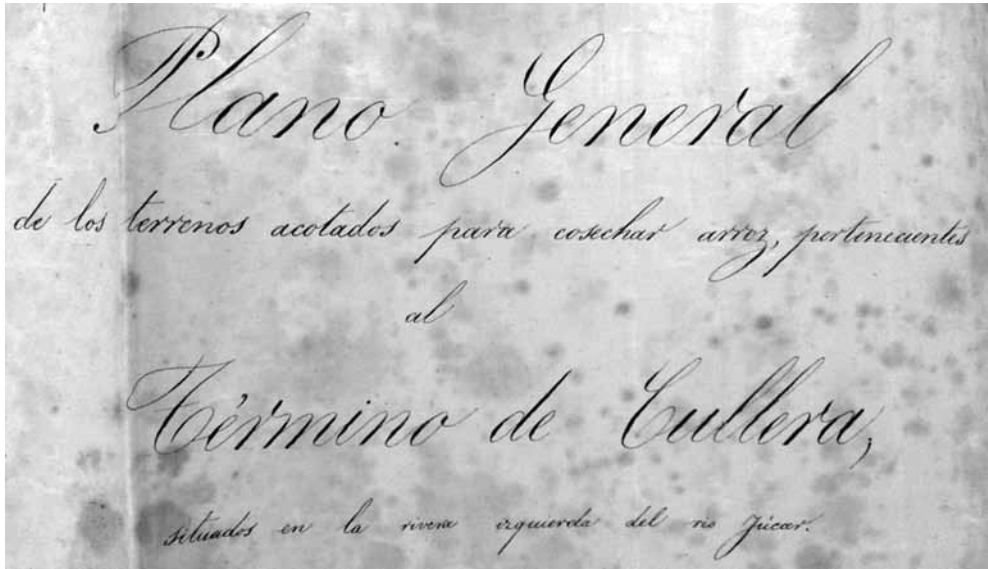 Plano General
de los terrenos acotados para cosechar arroz, pertenecientes
al
Término de Cullera,
situados en la rivera izquierda del rio Júcar.